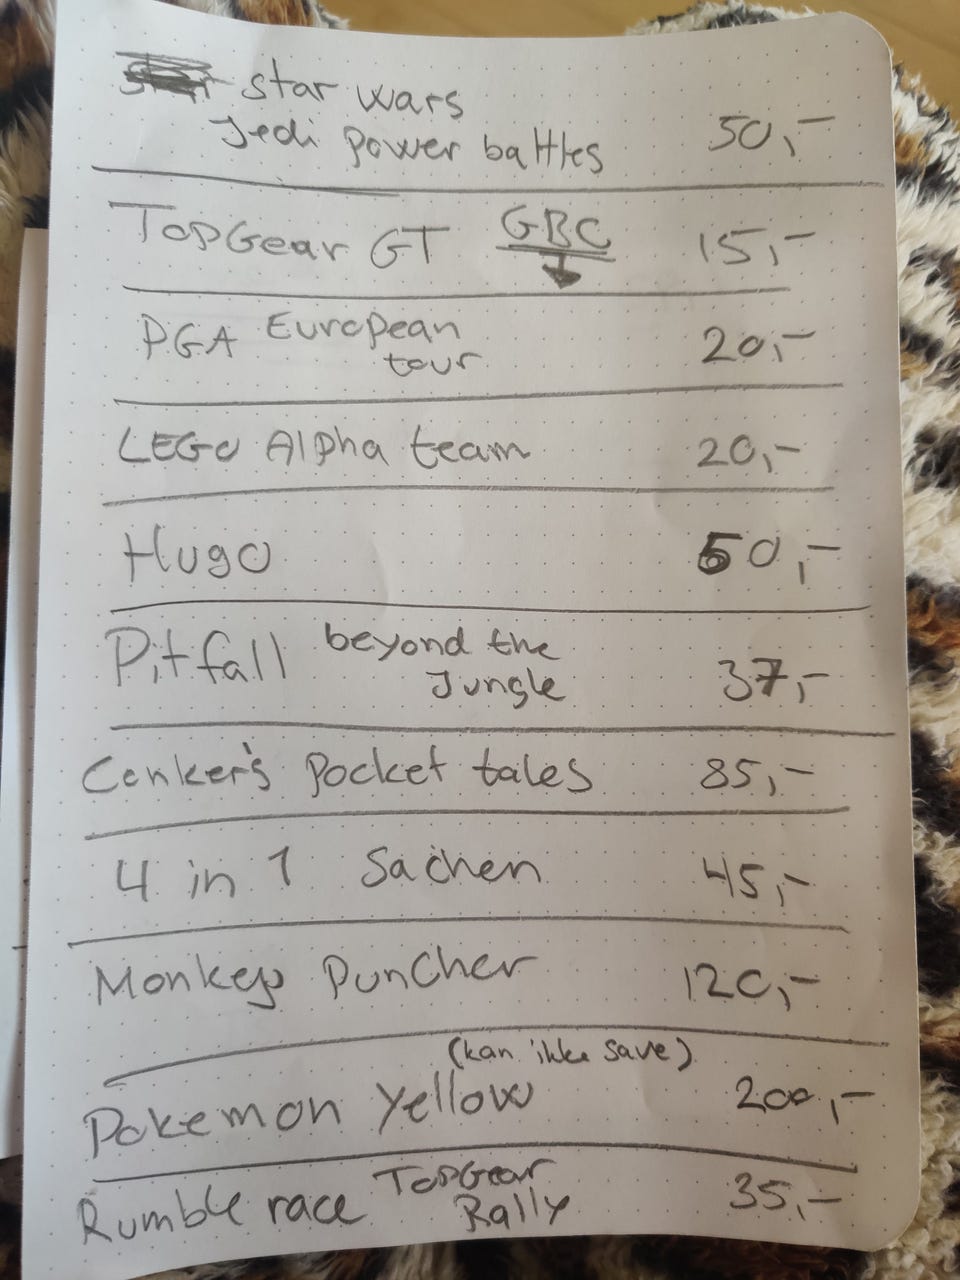 star wars
Jedi power battles 50,-
TopGear GT GBC 15,-
PGA European
tour 20,-
LEGO Alpha team 20,-
Hugo 50,-
Pitfall beyond the
Jungle 37,-
Conker's Pocket tales 85,-
4 in 1 Sachen 45,-
Monkey Puncher 120,-
(kan ikke save)
Pokemon Yellow 200,-
Rumble race TopGear
Rally 35,-